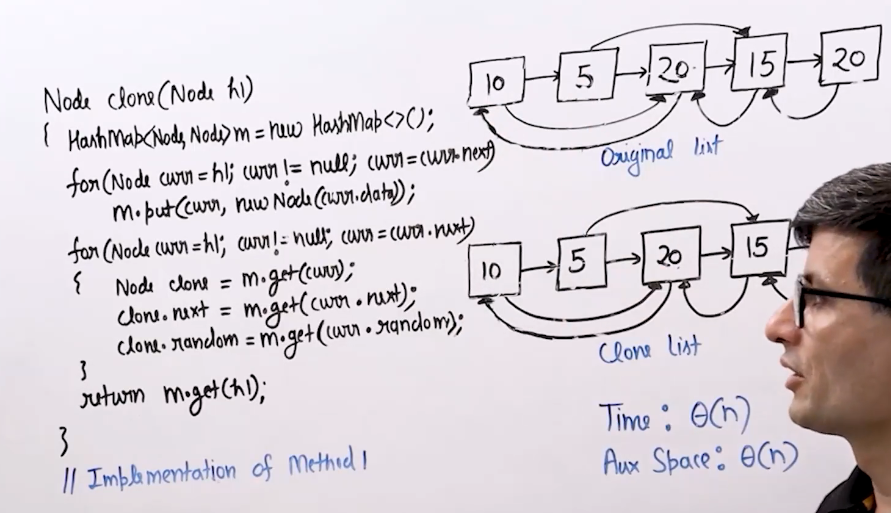 Node clone(Node h1)
{ HashMap<Node, Node> m = new HashMap<>();
for(Node curr = h1; curr != null; curr = curr.next)
m.put(curr, new Node(curr.data));
for(Node curr = h1; curr != null; curr = curr.next)
{ Node clone = m.get(curr);
clone.next = m.get(curr.next);
clone.random = m.get(curr.random);
}
return m.get(h1);
}
// Implementation of Method 1
10 5 20 15 20
Original list
10 5 20 15
Clone list
Time: θ(n)
Aux Space: θ(n)